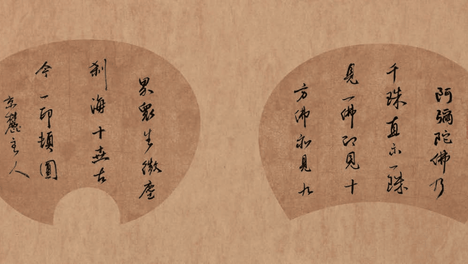 阿彌陀佛乃
千珠直示一珠
見一佛即見十
方佛亦見九
界衆生微塵
刹海十世古
今一印頓圓
京麓主人